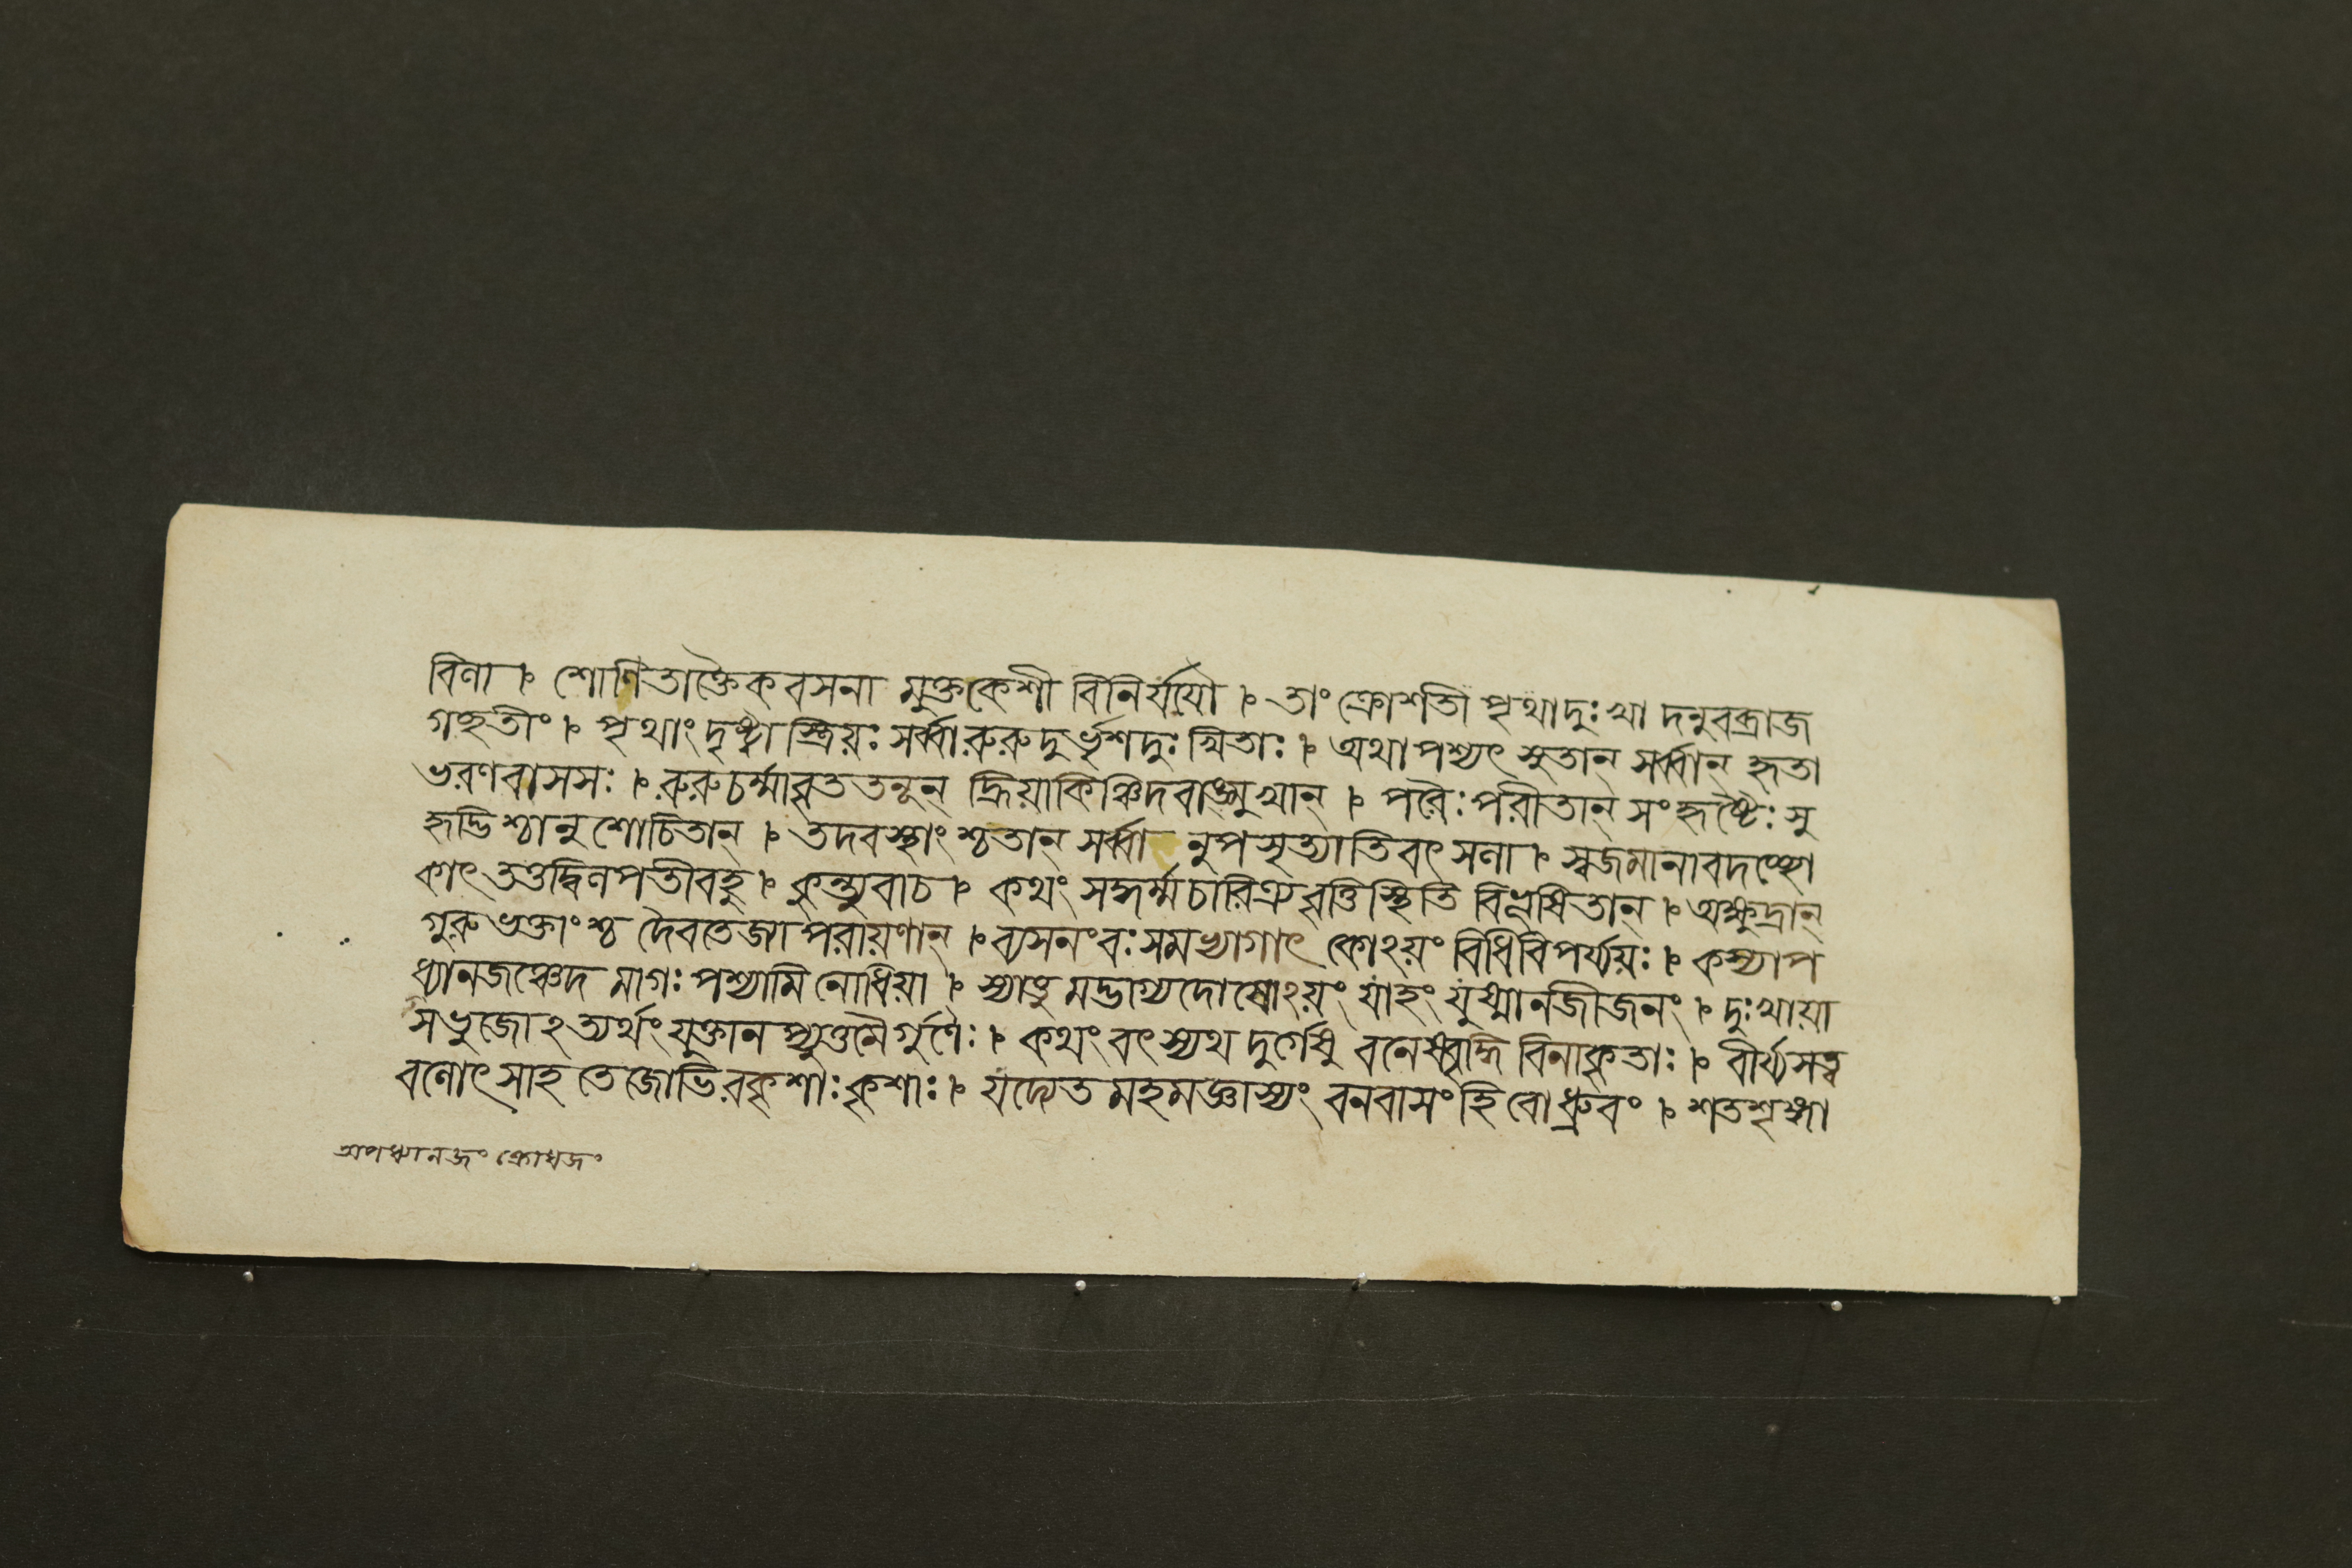 বিণা । শোণিতাক্তৈকবসনা মুক্তকেশী বিনির্যযৌ । তাং ক্রোশতী পৃথাদুঃখা দনুবব্রাজ
গচ্ছতীং । পৃথাং দৃষ্ট্বা স্ত্রিয়ঃ সর্ব্বা রুরুদুর্ভৃশদুঃখিতাঃ । অথাপশ্যৎ সুতান্ সর্ব্বান্ হৃতা
ভরণবাসসঃ । রুরুচর্ম্মাবৃততনূন্ হ্রিয়াকিঞ্চিদবাঙ্মুখান্ । পরৈঃ পরীতান্ সংহৃষ্টৈঃ সু
হৃদ্ভিশ্চানুশোচিতান্ । তদবস্থাংশ্চতান্ সর্ব্বা নুপসৃত্যাতিবৎসলা । স্বজমানাবদচ্ছো
কাৎ তত্তদ্বিলপতীবহু । কুন্ত্যুবাচ । কথং সদ্ধর্ম্মচারিত্রবৃত্তিস্থিতি বিভূষিতান্ । অক্ষুদ্রান্
গুরুভক্তাংশ্চ দৈবতেজ্যাপরায়ণান্ । ব্যসনংবঃ সমভ্যাগাৎ কোঽয়ং বিধিবিপর্য্যয়ঃ । কস্যাপ
ধ্যানজঞ্চেদ মাগঃ পশ্যামি বোধিয়া । স্যাত্তু মদ্ভাগ্যদোষোঽয়ং যাহং যুষ্মানজীজনং । দুঃখায়া
সভুজোঽত্যর্থং যুক্তান প্যুত্তমৈর্গুণৈঃ । কথং বৎস্যথ দুর্গেষু বনেষ্বৃদ্ধি বিনাকৃতাঃ । বীর্য্যসত্ত্ব
বলোৎসাহ তেজোভিরকৃশাঃ কৃশাঃ । যদ্যেত মহমজ্ঞাস্যং বনবাসং হি বো ধ্রুবং । শতশৃঙ্গা
অপধ্যানজং ক্রোধজং